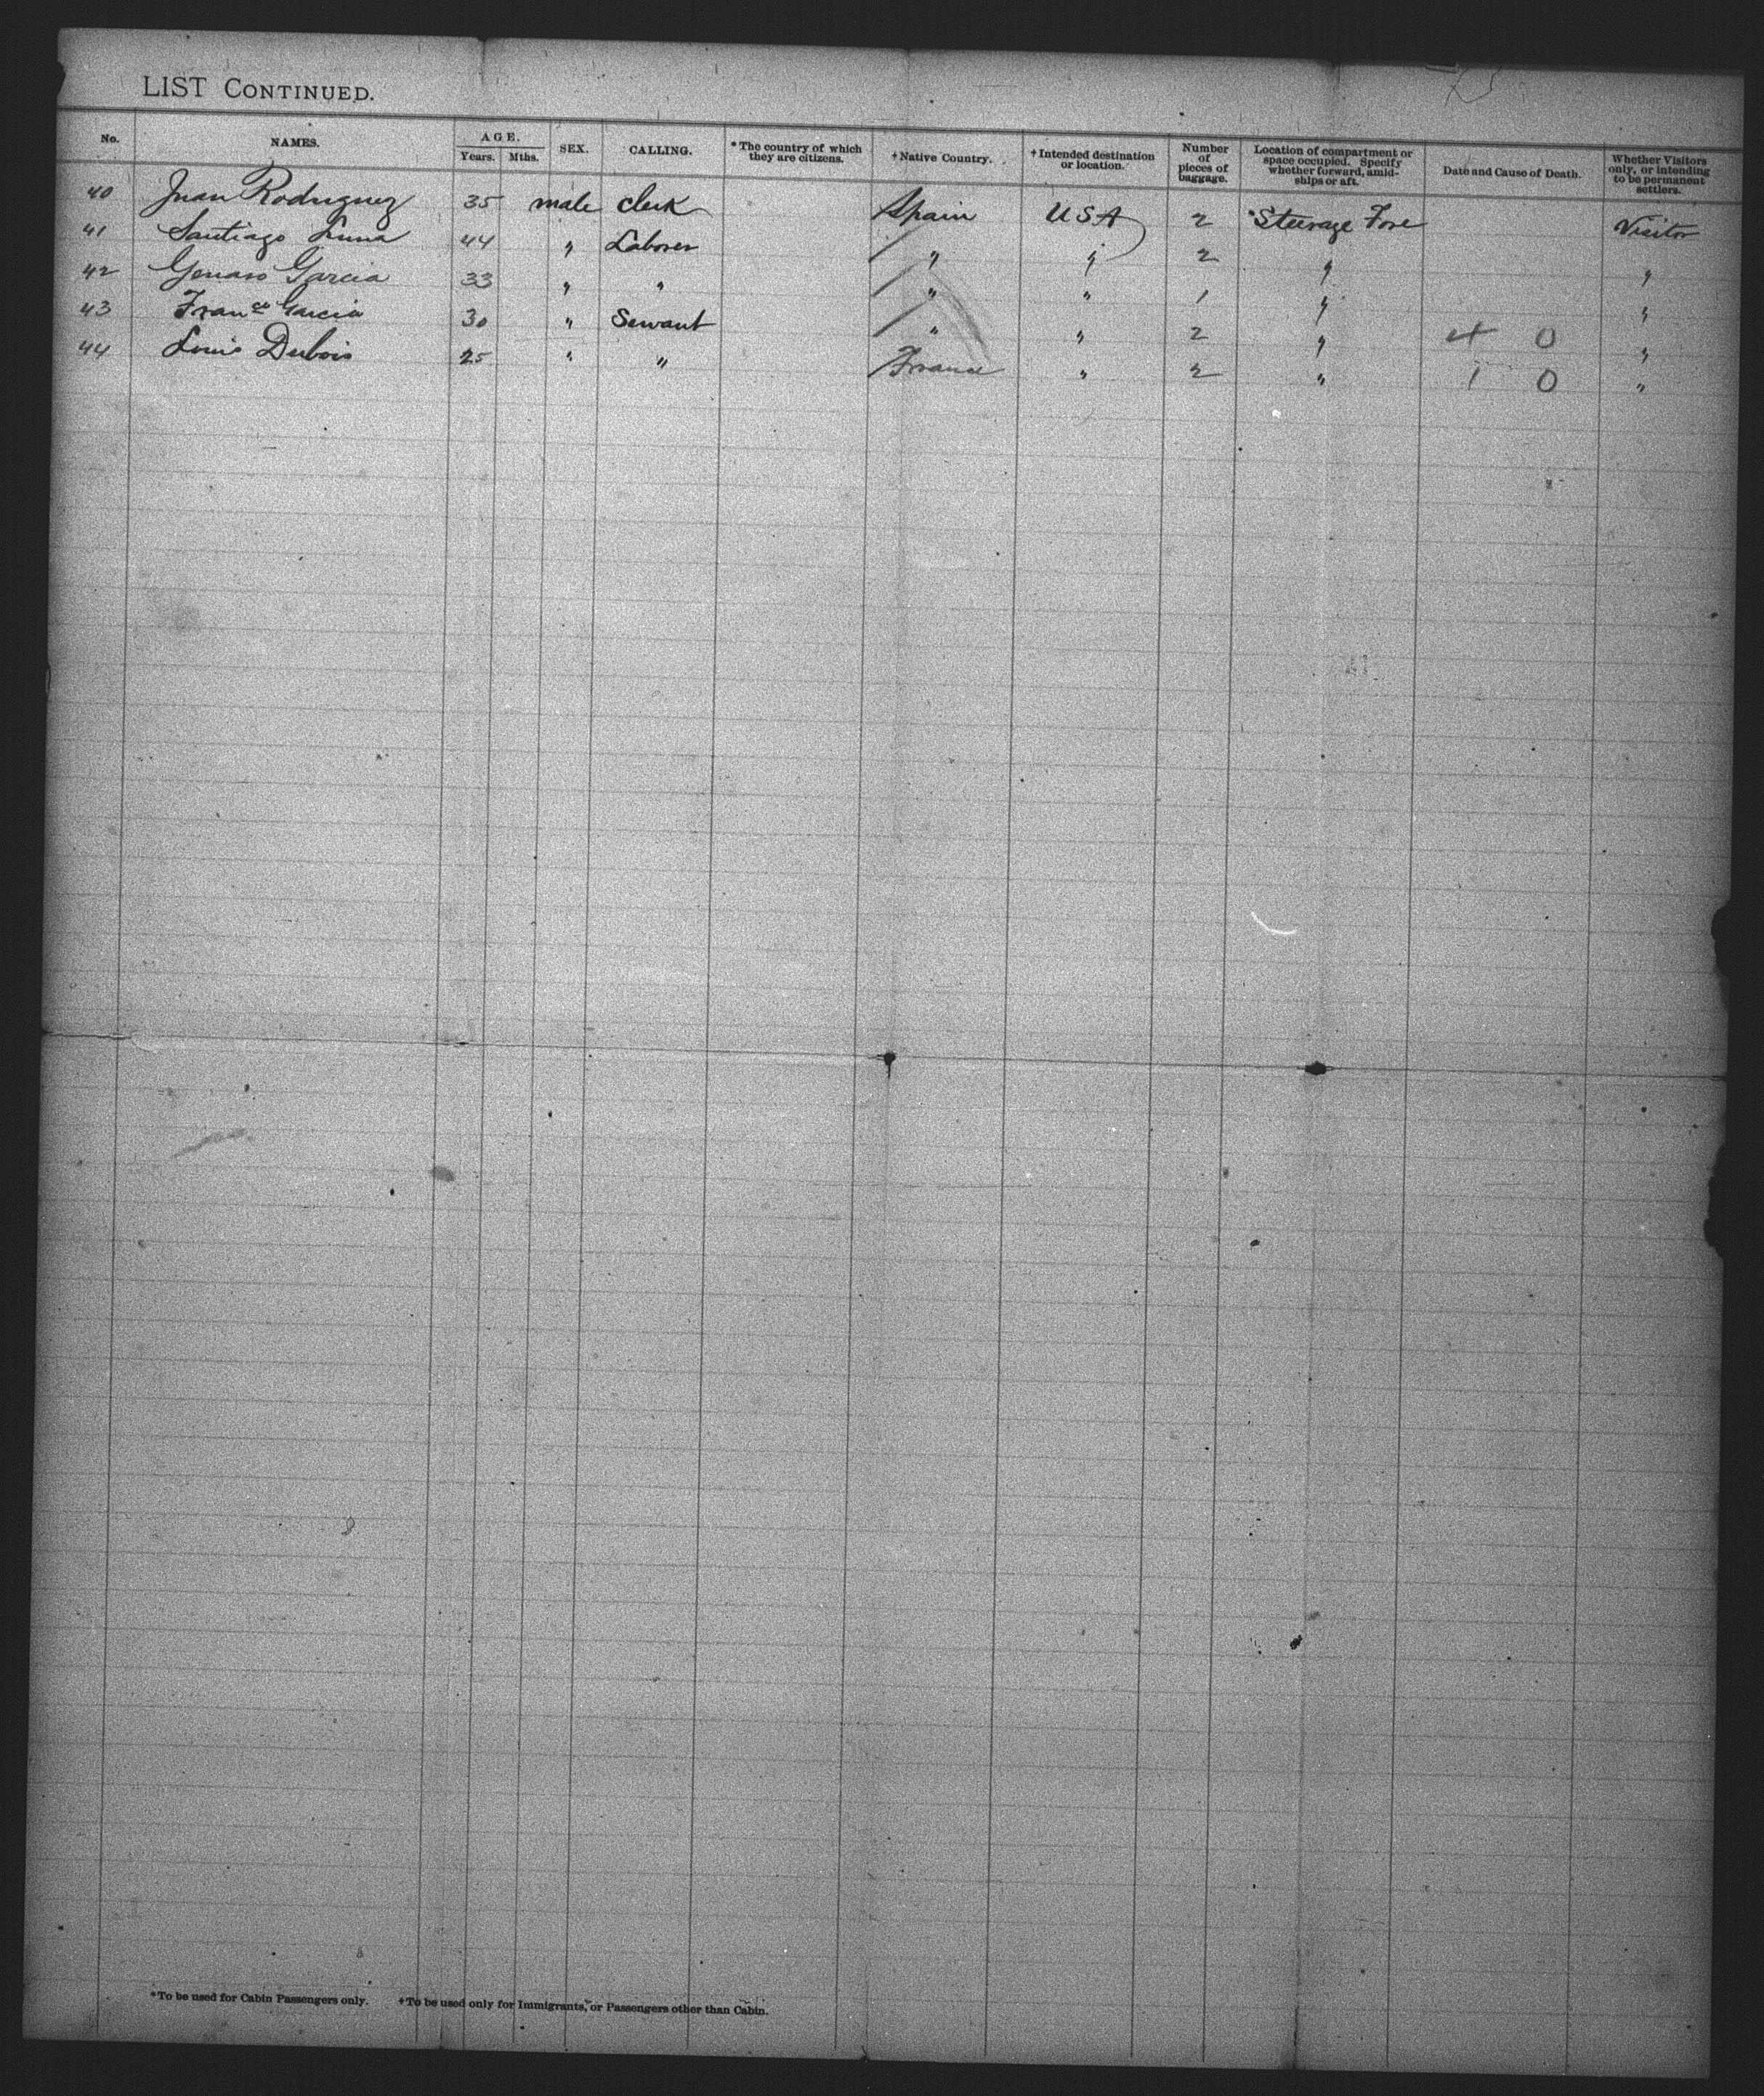 LIST CONTINUED.
No. NAMES. AGE. Years. Mths. SEX. CALLING. *The country of which they are citizens. +Native Country. +Intended destination or location. Number of pieces of baggage. Location of compartment or space occupied. Specify whether forward, amidships or aft. Date and Cause of Death. Whether Visitors only, or intending to be permanent settlers.
40 Juan Rodriguez 35 male Clerk Spain USA 2 Steerage Fore Visitor
41 Santiago Luna 44 " Laborer " " 2 " "
42 Genaro Garcia 33 " " " " 1 " "
43 Franco Garcia 30 " Servant " " 2 " 4 0 "
44 Louis Dubois 25 " " France " 2 " 1 0 "
*To be used for Cabin Passengers only. +To be used only for Immigrants, or Passengers other than Cabin.